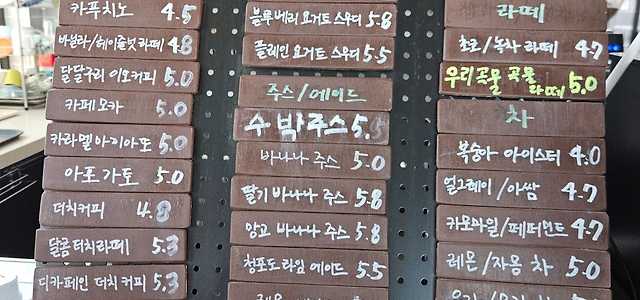 카푸치노 4.5
바닐라/헤이즐넛 라떼 4.8
달달구리 이오커피 5.0
카페모카 5.0
카라멜 마끼아또 5.0
아포가토 5.0
더치커피 4.8
달콤 더치라떼 5.3
디카페인 더치커피 5.3
블루베리 요거트 스무디 5.8
플레인 요거트 스무디 5.5
주스/에이드
수박주스 5.5
바나나 주스 5.0
딸기 바나나 주스 5.8
망고 바나나 주스 5.8
청포도 라임 에이드 5.5
라떼
초코/녹차 라떼 4.7
우리곡물 곡물
라떼 5.0
차
복숭아 아이스티 4.0
얼그레이/아쌈 4.7
카모마일/페퍼민트 4.7
레몬/자몽 차 5.0